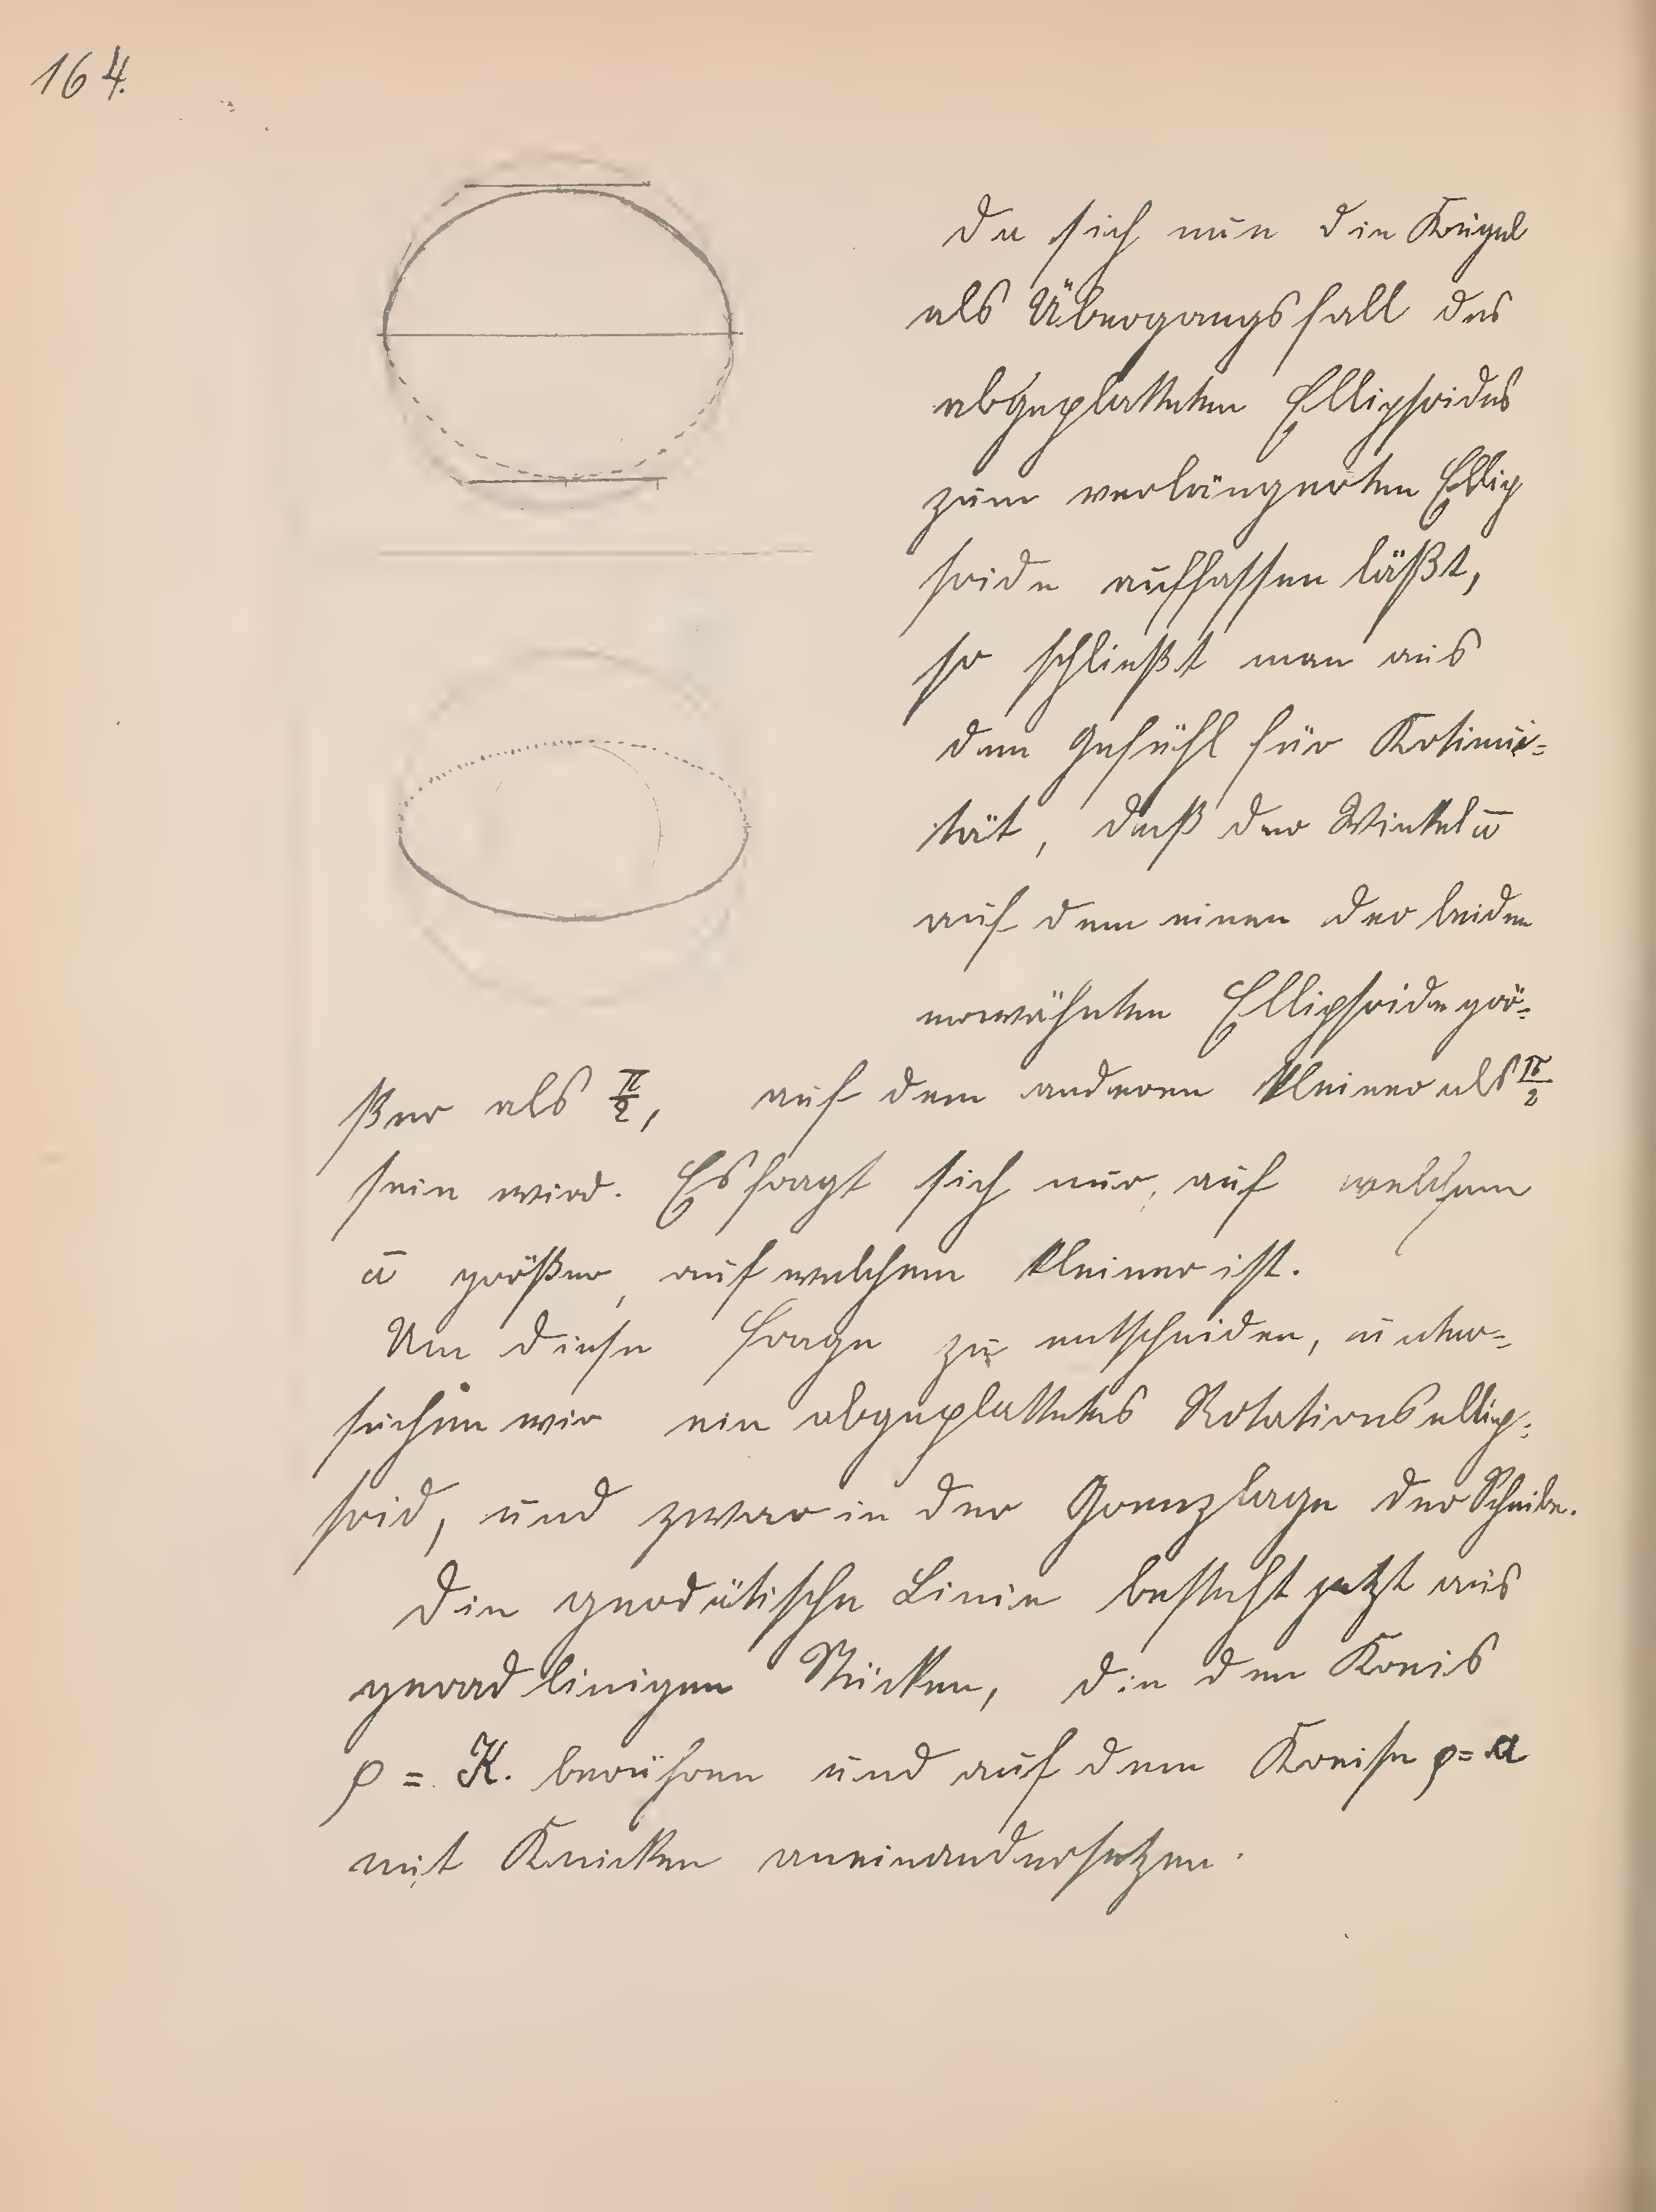 164.
Da sich nun die Kugel
als Übergangsfall des
abgeplatteten Ellipsoides
zum verlängerten Ellip
soide auffassen läßt,
so schließt man aus
dem Gefühl für Kotinui=
tät, daß der Winkel ω̄
auf dem einen der beiden
erwähnten Ellipsoide grö=
ßer als π/2, auf dem anderen kleiner als π/2
sein wird. Es fragt sich nur, auf welchem
ω̄ größer, auf welchem kleiner ist.
Um diese Frage zu entscheiden, unter=
suchen wir ein abgeplattetes Rotationsellip=
soid, und zwar in der Grenzlage der Scheibe.
Die geodätische Linie besteht jetzt aus
geradlinigen Stücken, die den Kreis
ρ = K. berühren und auf dem Kreise ρ = a
mit Knicken aneinandersetzen.